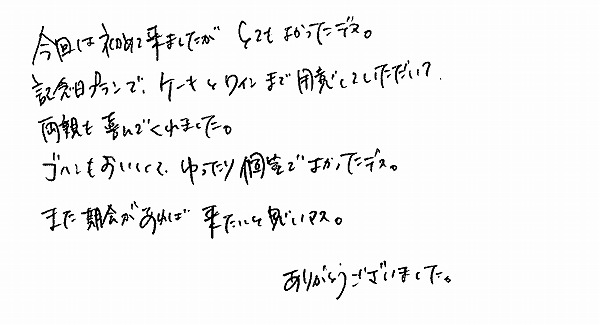 今回は初めて来ましたが とてもよかったデス。
記念日プランで、ケーキとワインまで用意していただいて
両親も喜んでくれました。
ゴハンもおいしくて、ゆったり個室でよかったデス。
また機会があれば 来たいと思いマス。
ありがとうございました。